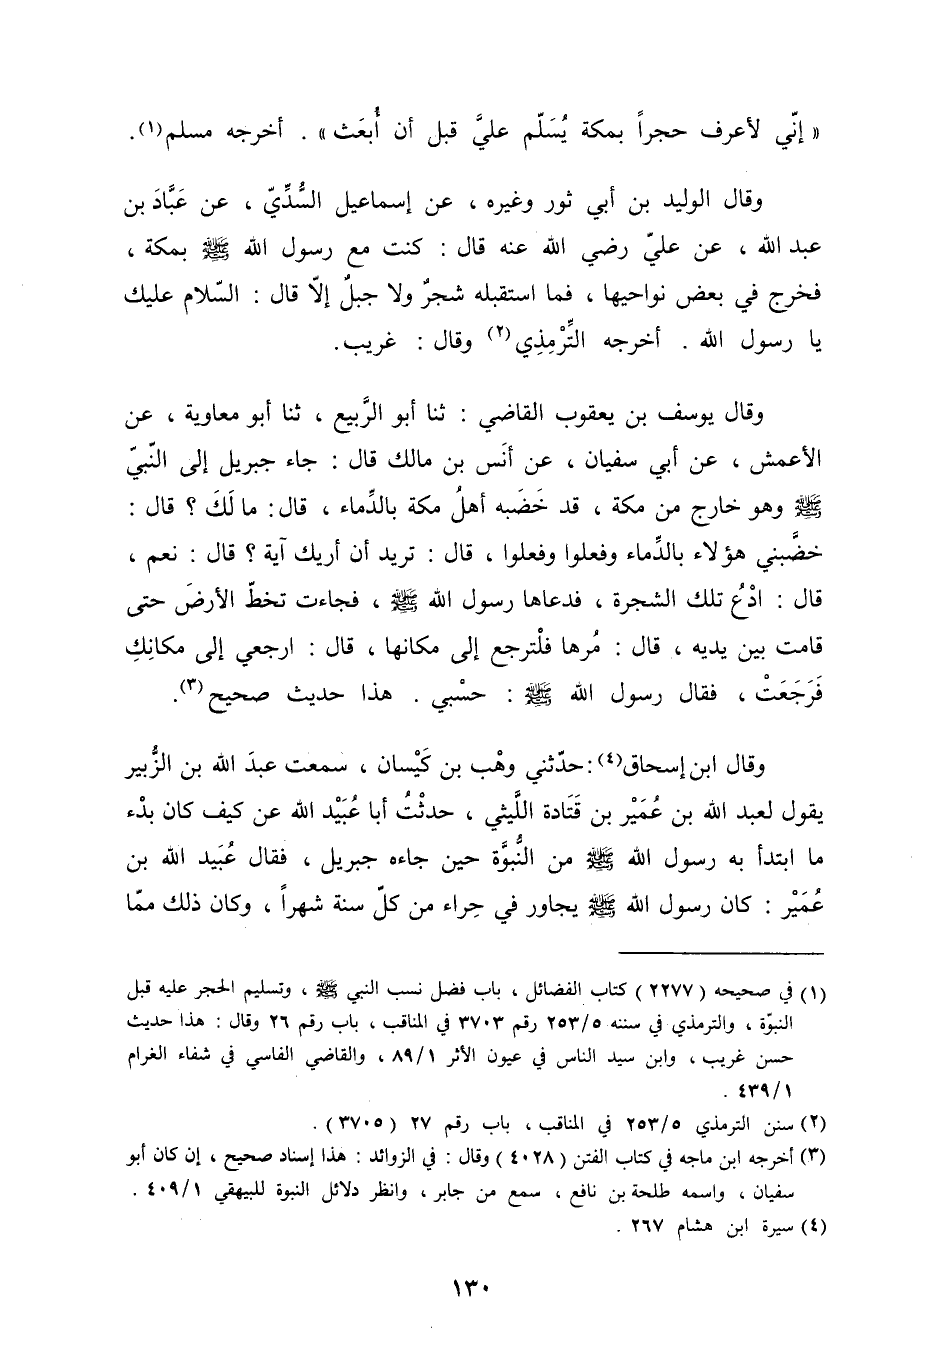 « إنّي لأعرف حجراً بمكة يُسَلّم عليَّ قبل أن أُبعَث » . أخرجه مسلم(١).
وقال الوليد بن أبي ثور وغيره ، عن إسماعيل السُّدِّيّ ، عن عَبَّادَ بن
عبد الله ، عن عليّ رضي الله عنه قال : كنت مع رسول الله ﷺ بمكة ،
فخرج في بعض نواحيها ، فما استقبله شجرٌ ولا جبلٌ إلاّ قال : السّلام عليك
يا رسول الله . أخرجه التِّرْمِذِي(٢) وقال : غريب.
وقال يوسف بن يعقوب القاضي : ثنا أبو الرَّبيع ، ثنا أبو معاوية ، عن
الأعمش ، عن أبي سفيان ، عن أنَس بن مالك قال : جاء جبريل إلى النّبيّ
ﷺ وهو خارج من مكة ، قد خَضَبه أهلُ مكة بالدِّماء ، قال: ما لَكَ ؟ قال :
خضَّبني هؤلاء بالدِّماء وفعلوا وفعلوا ، قال : تريد أن أريك آية ؟ قال : نعم ،
قال : ادْعُ تلك الشجرة ، فدعاها رسول الله ﷺ ، فجاءت تخطّ الأرضَ حتى
قامت بين يديه ، قال : مُرها فلْترجع إلى مكانها ، قال : ارجعي إلى مكانِكِ
فَرَجَعَتْ ، فقال رسول الله ﷺ : حسْبي . هذا حديث صحيح(٣).
وقال ابن إسحاق(٤):حدّثني وهْب بن كَيْسان ، سمعت عبدَ الله بن الزُّبير
يقول لعبد الله بن عُمَيْر بن قَتَادة اللَّيثي ، حدثْتُ أبا عُبَيْد الله عن كيف كان بدْء
ما ابتدأ به رسول الله ﷺ من النُّبوَّة حين جاءه جبريل ، فقال عُبَيد الله بن
عُمَيْر : كان رسول الله ﷺ يجاور في حِراء من كلّ سنة شهراً ، وكان ذلك ممّا
(١) في صحيحه ( ٢٢٧٧ ) كتاب الفضائل ، باب فضل نسب النبي ﷺ ، وتسليم الحجر عليه قبل
النبوّة ، والترمذي في سننه ٢٥٣/٥ رقم ٣٧٠٣ في المناقب ، باب رقم ٢٦ وقال : هذا حديث
حسن غريب ، وابن سيد الناس في عيون الأثر ٨٩/١ ، والقاضي الفاسي في شفاء الغرام
٤٣٩/١ .
(٢) سنن الترمذي ٢٥٣/٥ في المناقب ، باب رقم ٢٧ ( ٣٧٠٥ ) .
(٣) أخرجه ابن ماجه في كتاب الفتن ( ٤٠٢٨ ) وقال : في الزوائد : هذا إسناد صحيح ، إن كان أبو
سفيان ، واسمه طلحة بن نافع ، سمع من جابر ، وانظر دلائل النبوة للبيهقي ٤٠٩/١ .
(٤) سيرة ابن هشام ٢٦٧ .
١٣٠